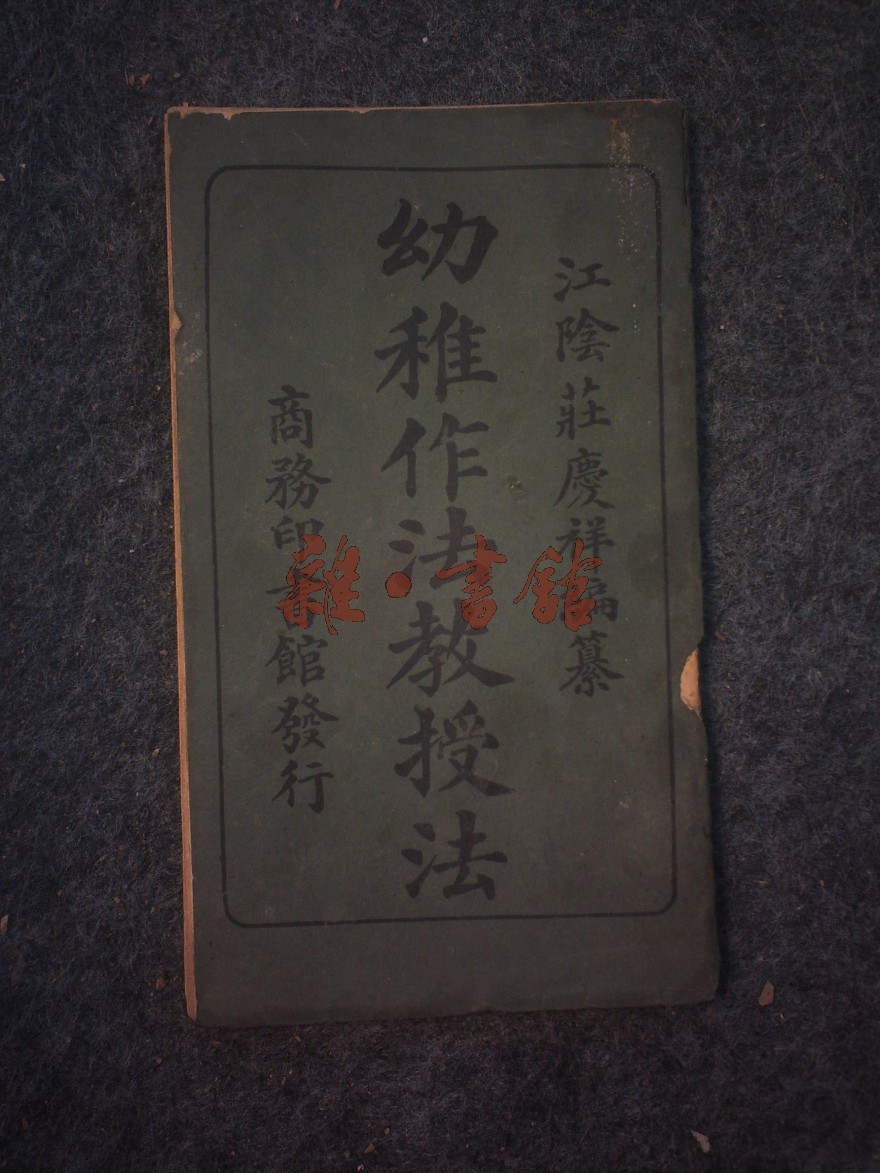 江陰莊慶祥編纂
幼稚作法教授法
商務印書館發行
雜·書館